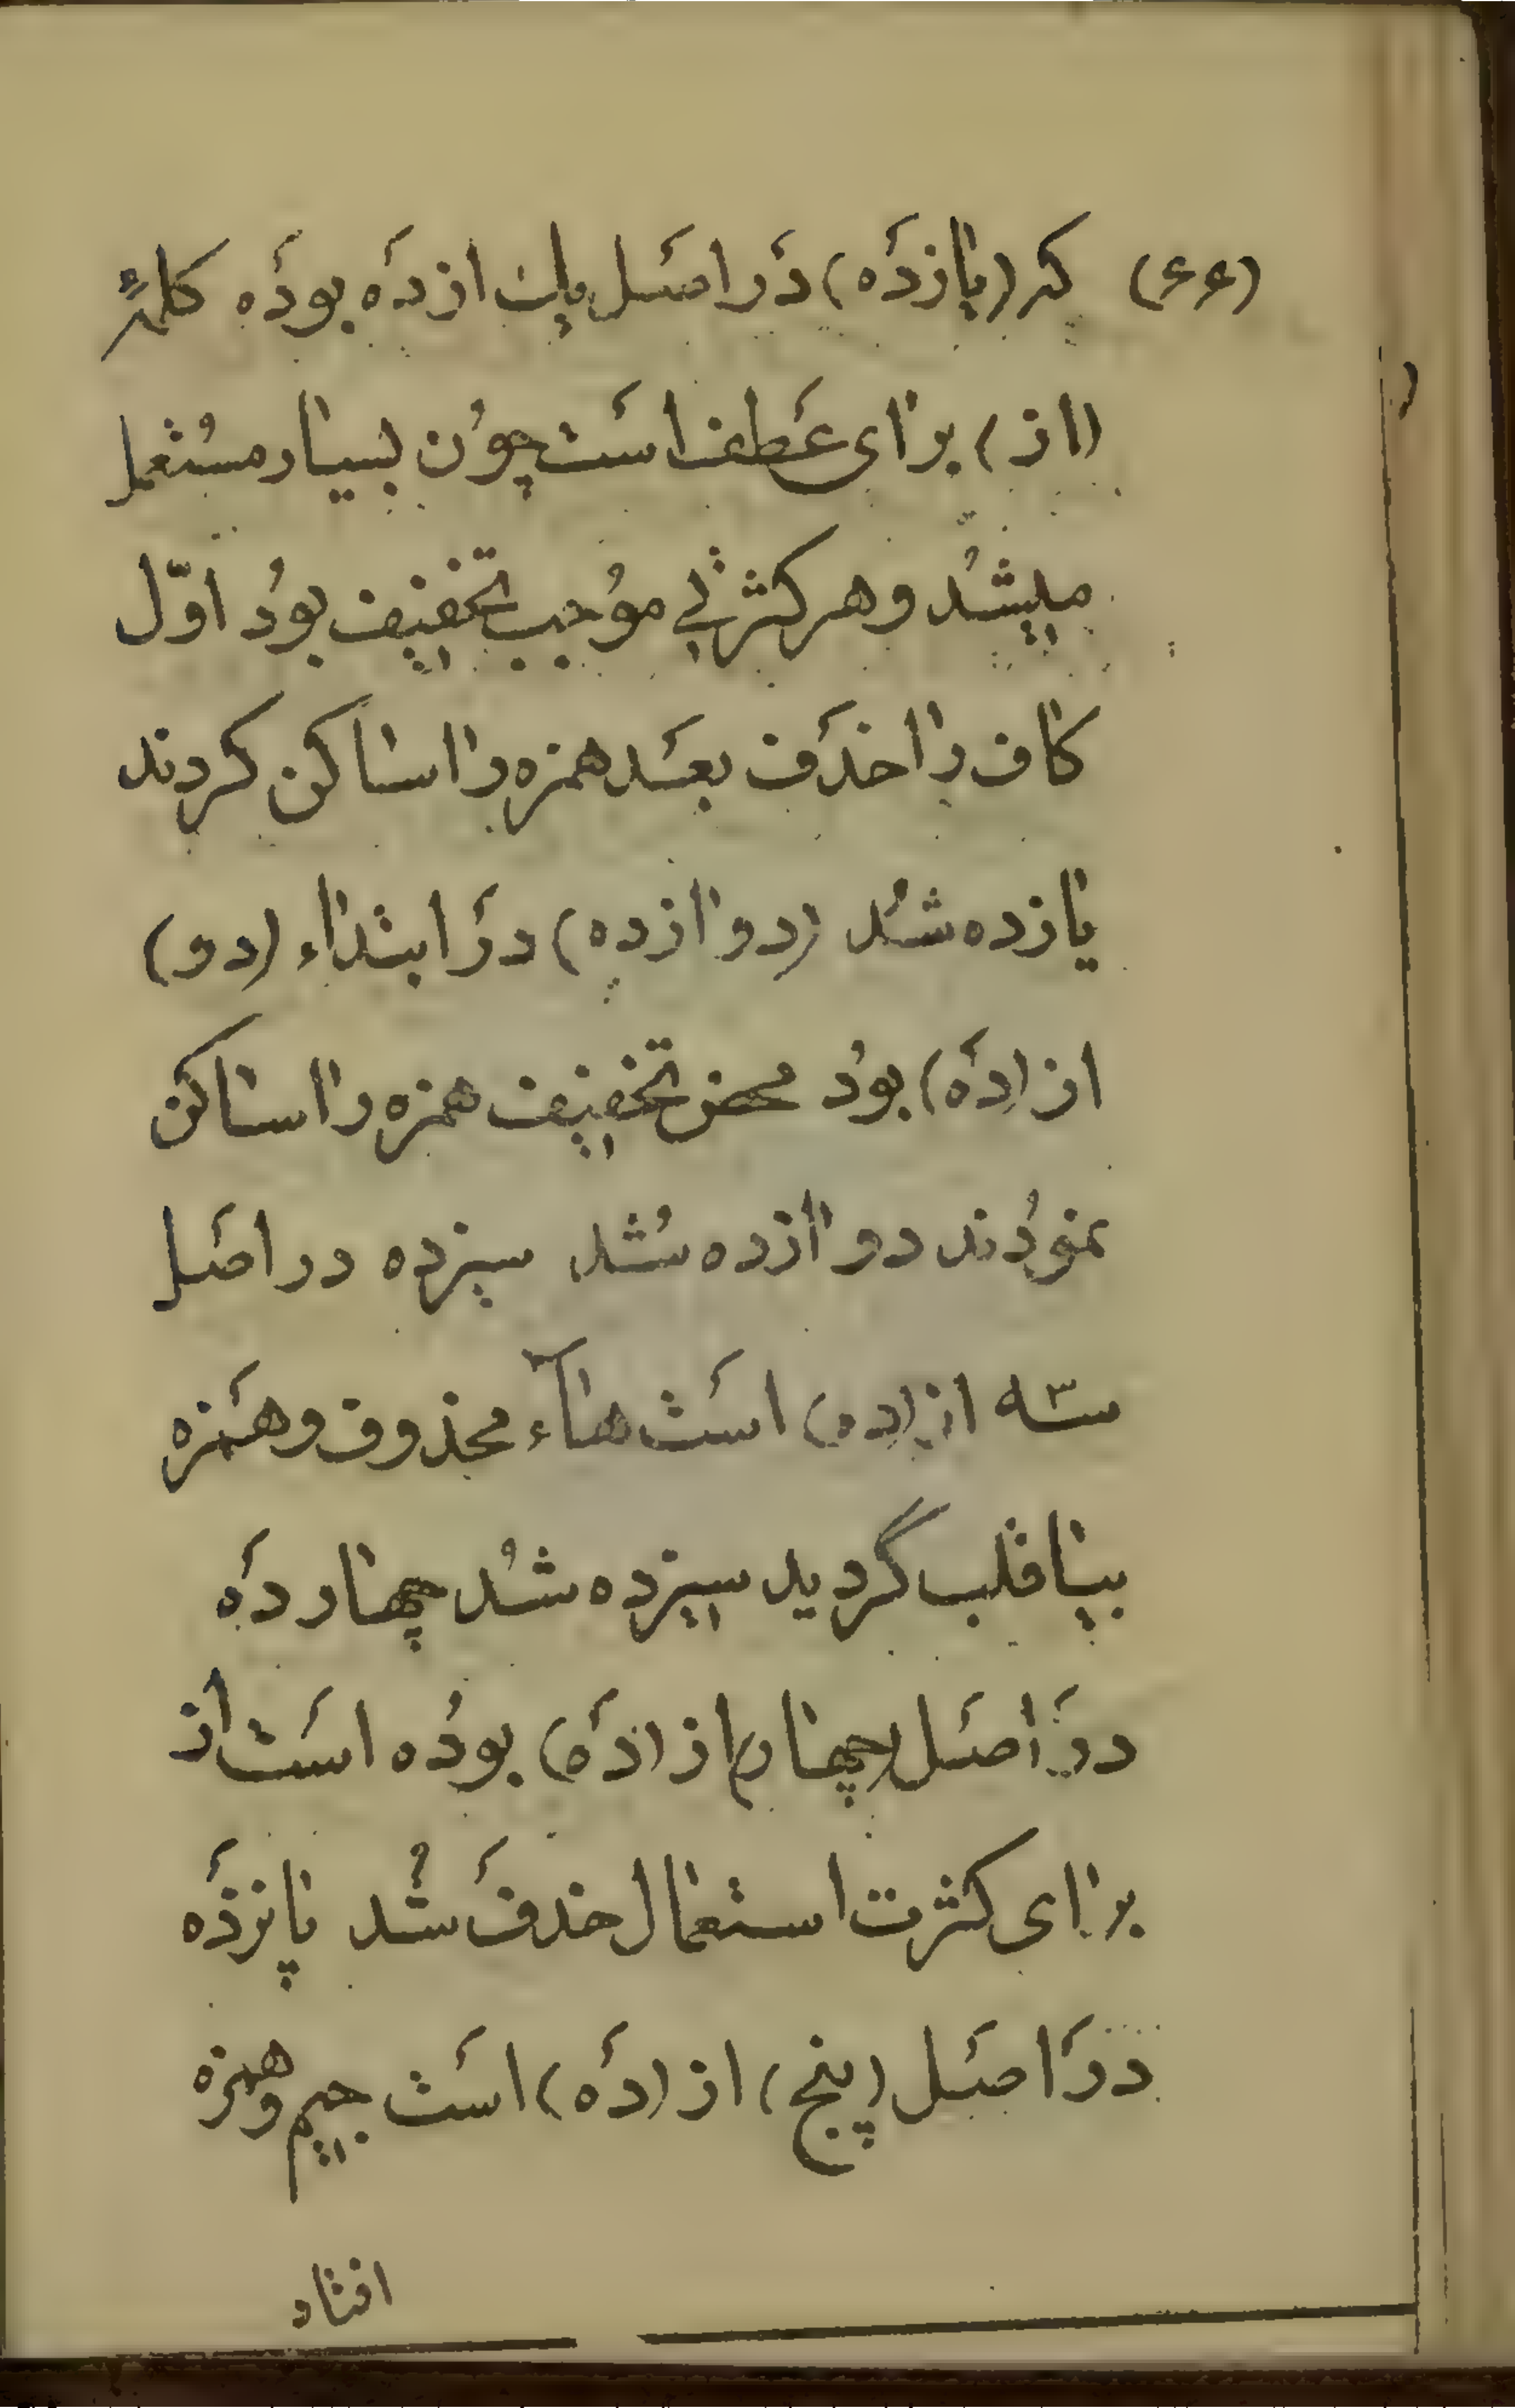 (۶۶) که (یازدَه) دَر اصَل یك از دَه بودَه کلمهٔ
(از) برای عَطف اسَت چوُن بسیار مسُتعمل
میشُد و هر کثرتی موُجب تخفیف بوُد اوّل
کاف را حذَف بعَد همزه را ساکن کردند
یازده شُد (دوازده) درَ ابتداء (دو)
از (دَه) بوُد محض تخفیف همزه را ساکن
نموُدند دوازده شُد سیزده در اصَل
سه از (ده) اسَت هاء محذوف و همَزه
بیا قلب گردید سیزده شُد چهار دَه
درَ اصَل (چهار) از (دَه) بوُده اسَت از
برای کثرت استعمال حذفَ شُد پانزدَه
درَ اصَل (پنج) از (دَه) اسَت جیم و همزه
افتاد